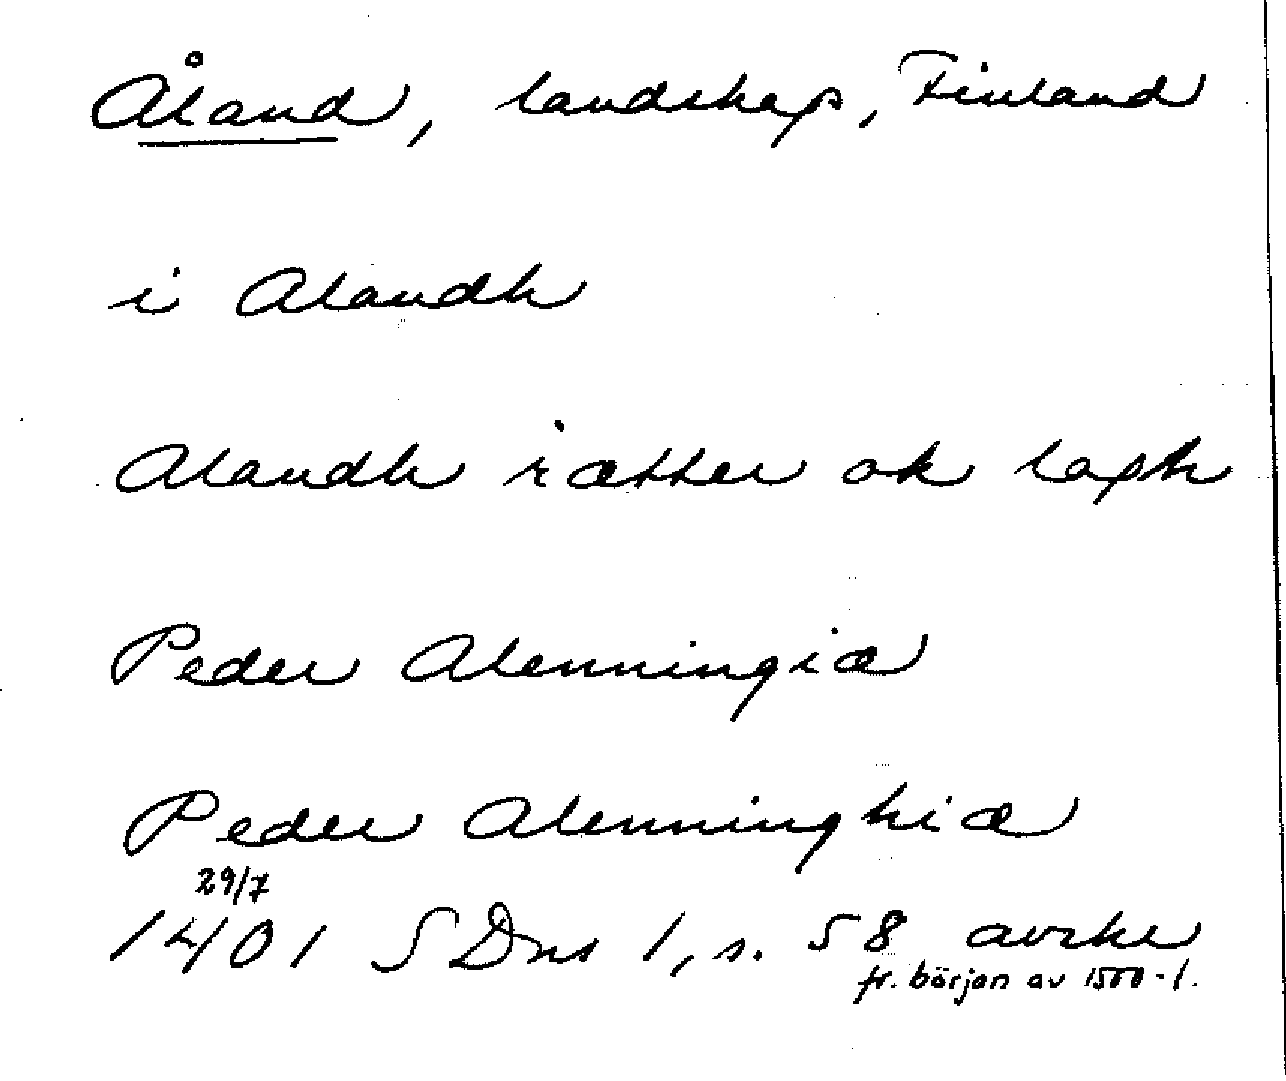 Åland, landskap, Finland
i Alandh
Alandh rætter ok laghh
Peder Alenningiæ
Peder Alenninghiæ
29/7
1401 SDns 1, s. 58 avskr
fr. början av 1500-t.